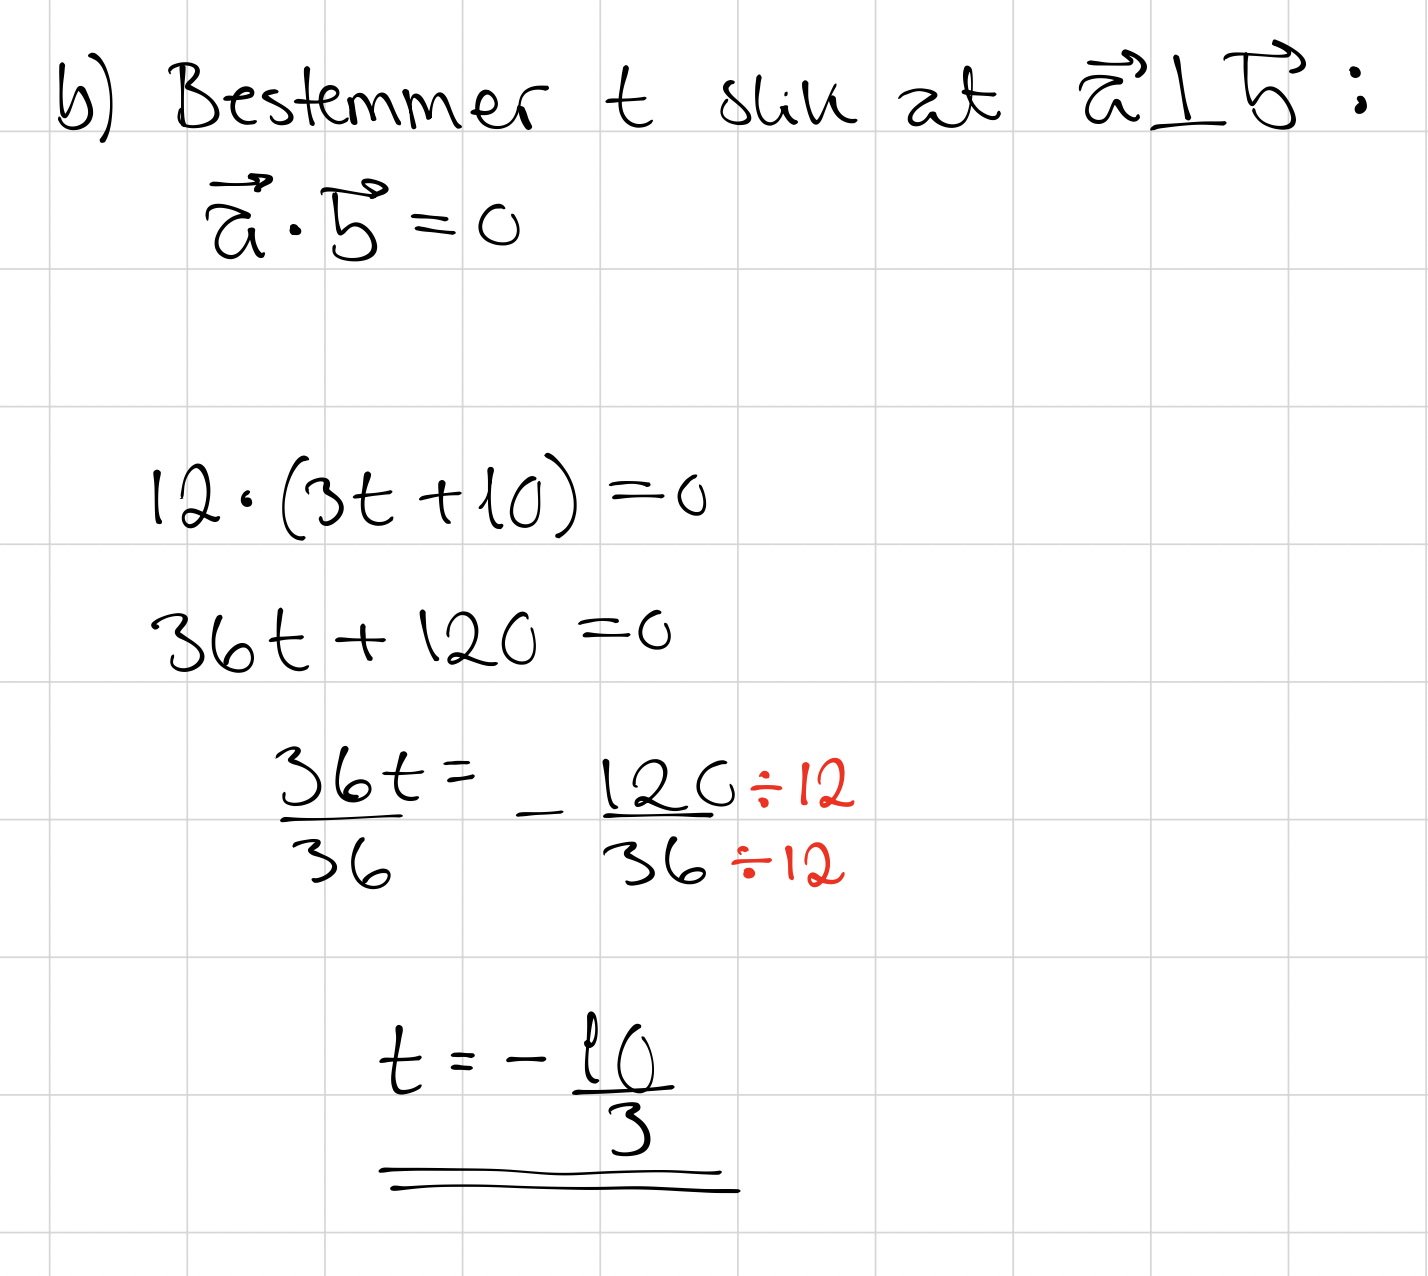 b) Bestemmer t slik at a⃗ ⊥ b⃗ :
a⃗ · b⃗ = 0
12 · (3t + 10) = 0
36t + 120 = 0
36t/36 = - 120÷12/36÷12
t = - 10/3